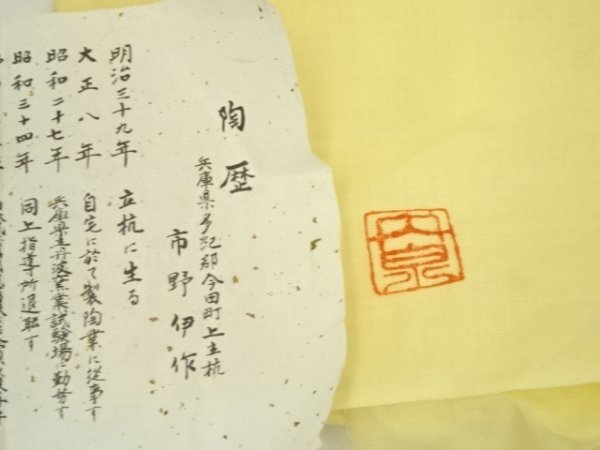 陶歴
兵庫県多紀郡今田町上立杭
市野伊作
明治三十九年 立杭に生る
大正八年 自宅に於て製陶業に従事す
昭和二十七年 兵庫県立丹波窯業試験場に勤務す
昭和三十四年 同上指導所退職す